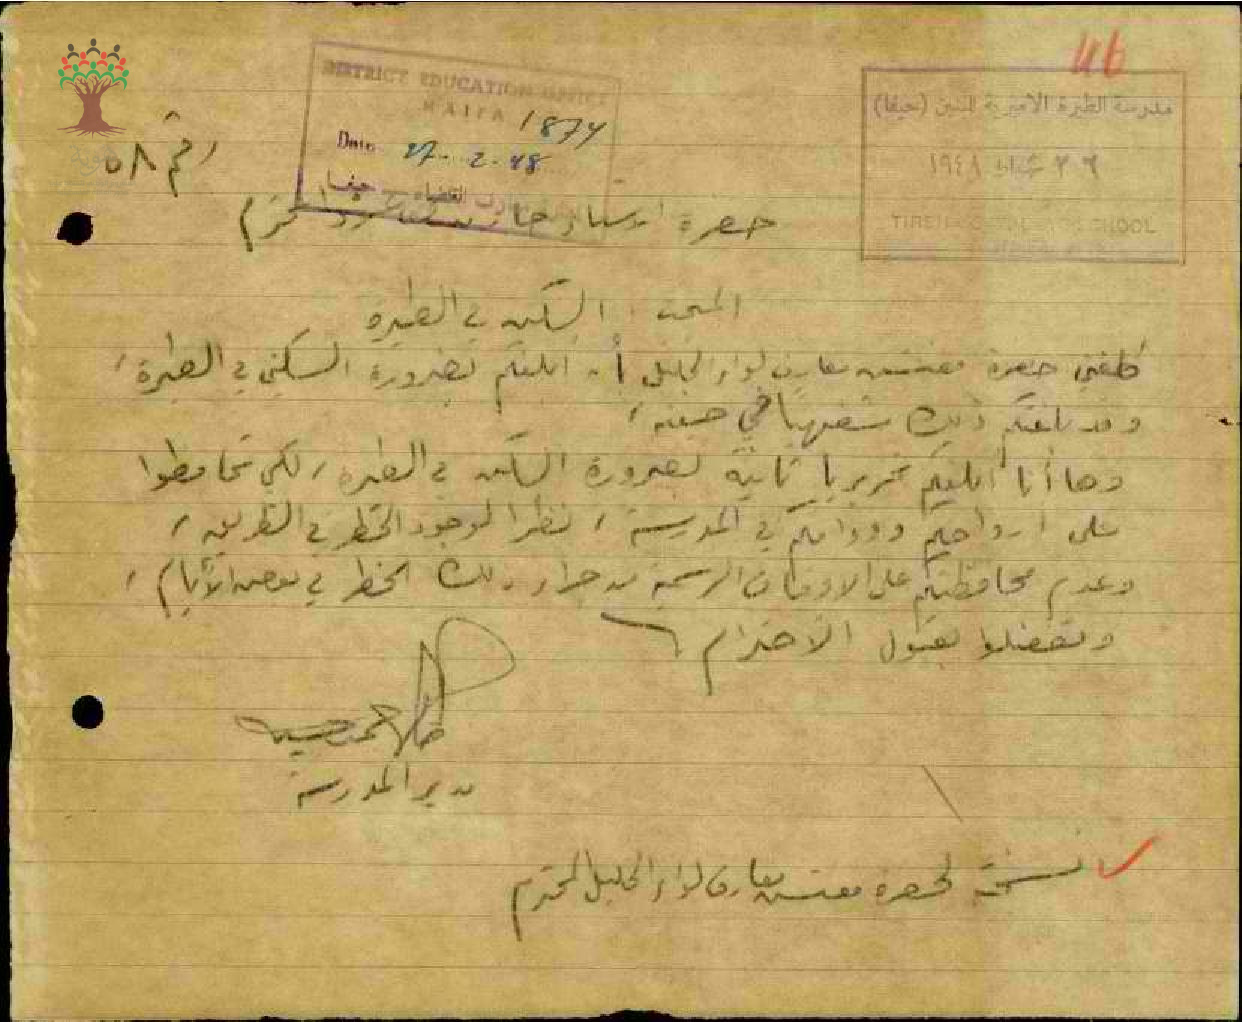 46
DISTRICT EDUCATION OFFICE
HAIFA
1874
Date 27.2.48
حيفا
مدرسة الطيرة الاميرية للبنين (حيفا)
٢٦ شباط ١٩٤٨
TIREH SCHOOL
رقم ٥٨
حضرة المحترم
المبحث : السكن في الطيرة
كلفني حضرة مفتش معارف لواء الجليل أن ابلغكم بضرورة السكنى في الطيرة ،
وقد بلغتكم ذلك شفهيا في حينه ،
وها أنا ابلغكم تحريريا ثانية بضرورة السكن في الطيرة ، لكي تحافظوا
على ارواحكم ودوامكم في المدرسة ، نظرا لوجود الخطر في الطريق ،
وعدم محافظتكم على الاوقات الرسمية من جراء ذلك الخطر في بعض الأيام ،
وتفضلوا بقبول الاحترام
مدير المدرسة
نسخة لحضرة مفتش معارف لواء الجليل المحترم